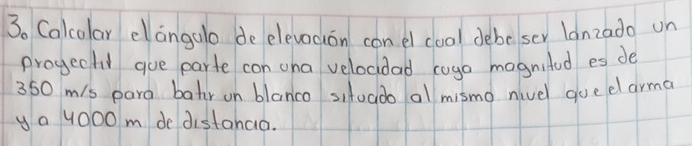 3. Calcular el ángulo de elevación con el cual debe ser lanzado un
proyectil que parte con una velocidad cuya magnitud es de
350 m/s para batir un blanco situado al mismo nivel que el arma
y a 4000 m de distancia.